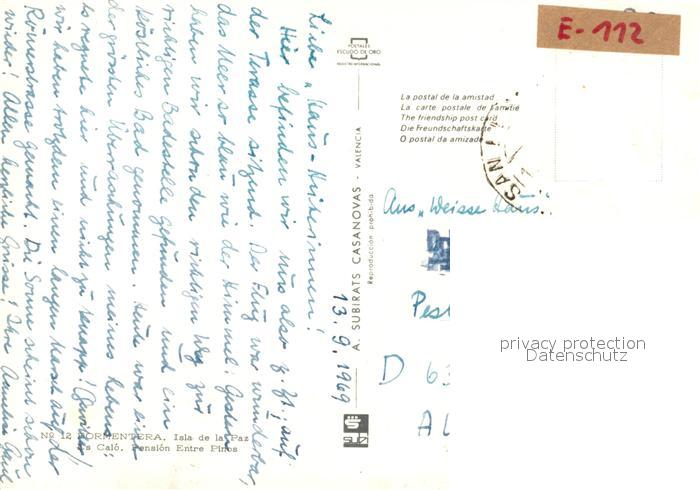 E-112
POSTALES
ESCUDO DE ORO
REGISTRO INTERNACIONAL
La postal de la amistad
La carte postale de l'amitié
The friendship post card
Die Freundschaftskarte
O postal da amizade
SAN
Liebe "Haus-Hüterinnen"!
Hier befinden wir uns also z. Zt., auf
der Terasse sitzend. Der Flug war wunderbar,
das Meer so blau wie der Himmel. Gestern
haben wir schon den richtigen Weg zur
richtigen Badestelle gefunden und ein
köstliches Bad genommen. Heute war eine
der grössten Überraschungen meines Lebens:
es regnete hier und nicht zu knapp! (Gewitter)
wir haben trotzdem einen langen Marsch auf der
Römerstrasse gemacht. Die Sonne scheint schon
wieder! Allen herzliche Grüsse! Ihre
13.9.1969
A. SUBIRATS CASANOVAS - VALENCIA
Reproducción prohibida
Aus "Weisse Haus"
Pes
D 63
A
Nº 12 FORMENTERA. Isla de la Paz
Es Caló. Pensión Entre Pinos
privacy protection
Datenschutz